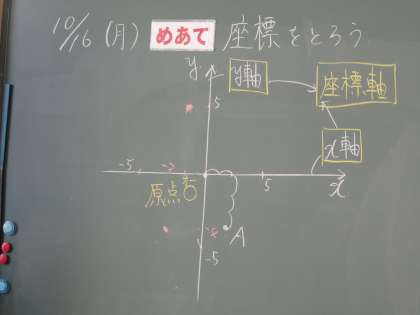 10/16 (月) めあて 座標をとろう
y
y軸
座標軸
5
x軸
-5
-2
5
x
原点O
-4
A
-5